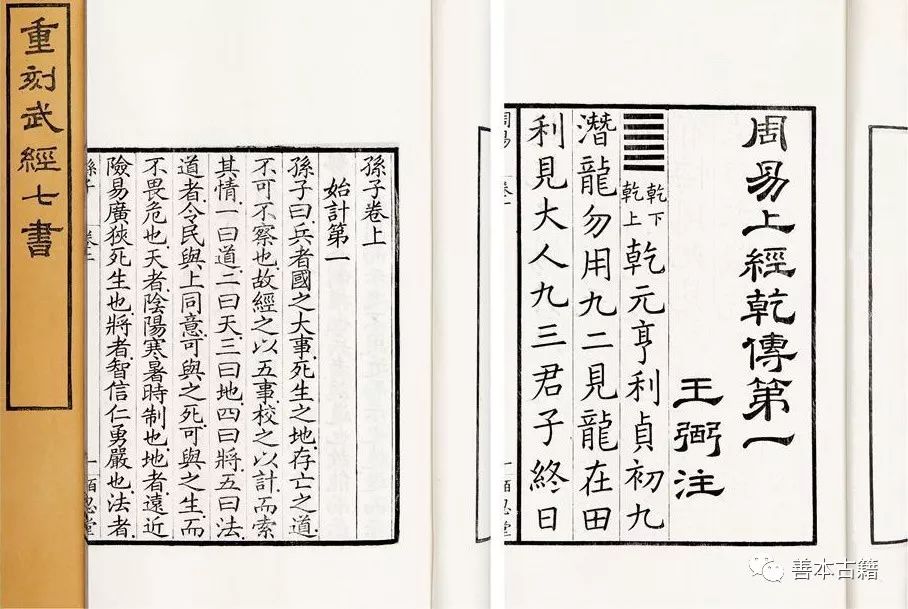 重刻武經七書
孫子卷上
始計第一
孫子曰兵者國之大事死生之地存亡之道
不可不察也故經之以五事校之以計而索
其情一曰道二曰天三曰地四曰將五曰法
道者令民與上同意可與之死可與之生而
不畏危也天者陰陽寒暑時制也地者遠近
險易廣狹死生也將者智信仁勇嚴也法者
孫子
周易上經乾傳第一
王弼注
䷀乾下乾上乾元亨利貞初九
潛龍勿用九二見龍在田
利見大人九三君子終日
周易 卷一
善本古籍